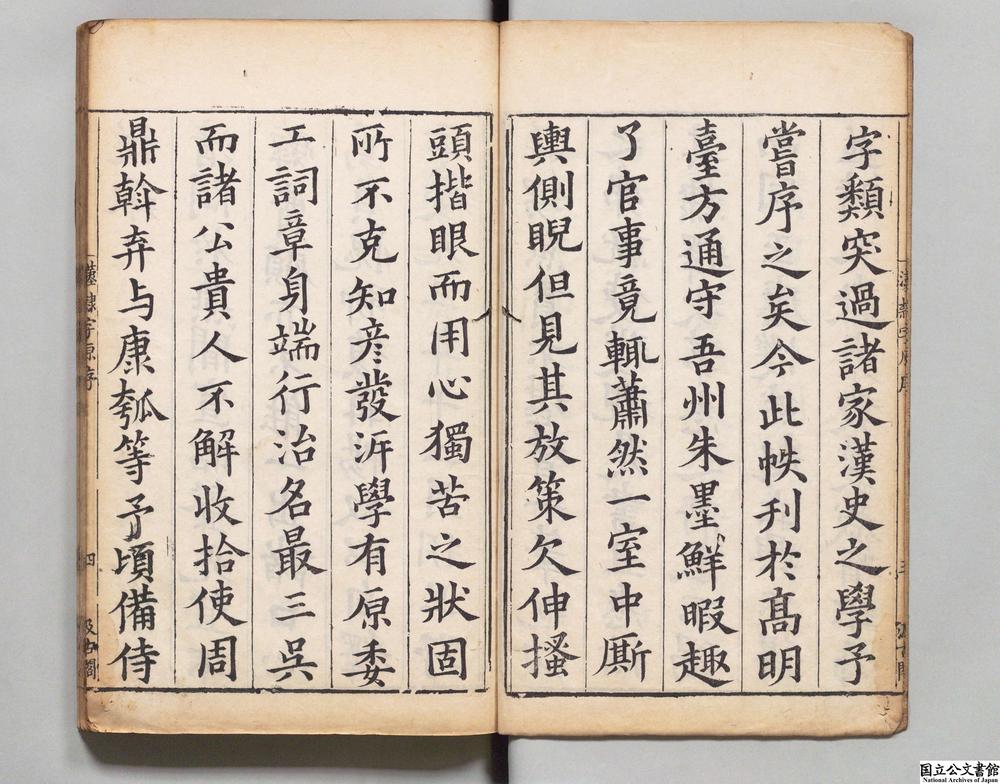 字類突過諸家漢史之學予
嘗序之矣今此帙刊於髙明
臺方通守吾州朱墨鮮暇趣
了官事竟輒蕭然一室中厮
輿側睨但見其放策欠伸搔
頭揩眼而用心獨苦之狀固
所不克知彦發泝學有原委
工詞章身端行治名最三吳
而諸公貴人不解收拾使周
鼎斡弃与康瓠等予頃備侍
漢隸字原序
四
汲古閣
国立公文書館
National Archives of Japan